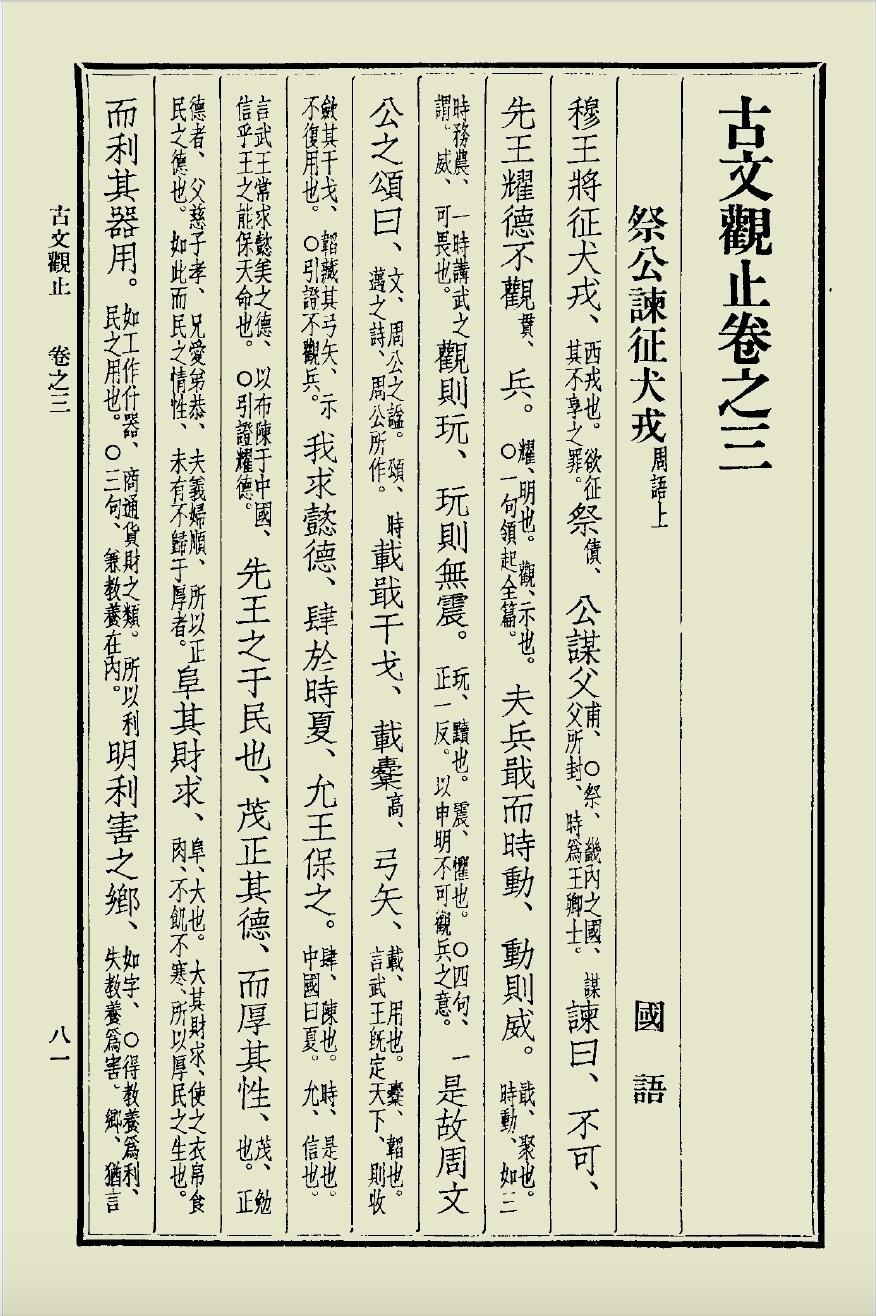 古文觀止卷之三
祭公諫征犬戎周語上 國語
穆王將征犬戎、西戎也。欲征其不享之罪。祭債、公謀父甫、○祭、畿內之國、謀父所封、時爲王卿士。諫曰、不可、
先王耀德不觀貫、兵。耀、明也。觀、示也。○一句領起全篇。夫兵戢而時動、動則威。戢、聚也。時動、如三
時務農、一時講武之謂。威、可畏也。觀則玩、玩則無震。玩、黷也。震、懼也。○四句、一正一反。以申明不可觀兵之意。是故周文
公之頌曰、文、周公之謚。頌、時邁之詩、周公所作。載戢干戈、載櫜高、弓矢、載、用也。櫜、韜也。言武王旣定天下、則收
斂其干戈、韜藏其弓矢、示不復用也。○引證不觀兵。我求懿德、肆於時夏、允王保之。肆、陳也。時、是也。中國曰夏。允、信也。
言武王常求懿美之德、以布陳于中國、信乎王之能保天命也。○引證耀德。先王之于民也、茂正其德、而厚其性、茂、勉也。正
德者、父慈子孝、兄愛弟恭、夫義婦順、所以正民之德也。如此而民之情性、未有不歸于厚者。阜其財求、阜、大也。大其財求、使之衣帛食肉、不飢不寒、所以厚民之生也。
而利其器用。如工作什器、商通貨財之類。所以利民之用也。○三句、兼教養在內。明利害之鄉、如字、○得教養爲利、失教養爲害。鄉、猶言
古文觀止 卷之三 八一